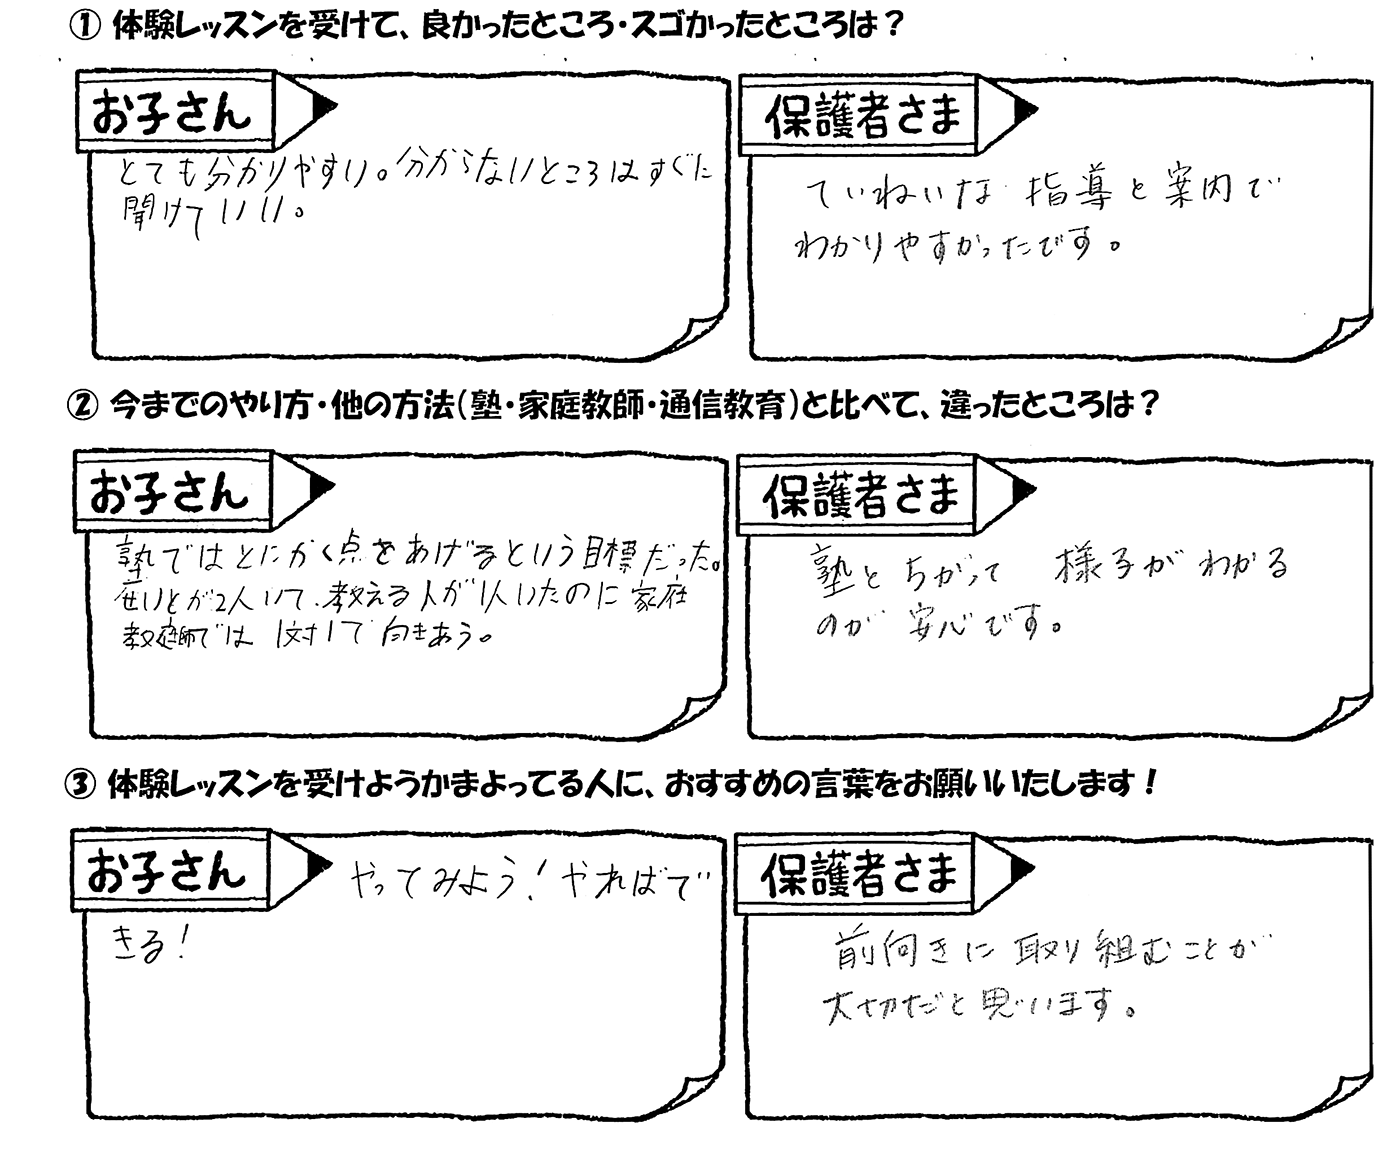 ① 体験レッスンを受けて、良かったところ・スゴかったところは？
お子さん
とても分かりやすい。分からないところはすぐに
聞けていい。
保護者さま
ていねいな 指導と案内で
わかりやすかったです。
② 今までのやり方・他の方法(塾・家庭教師・通信教育)と比べて、違ったところは？
お子さん
塾ではとにかく点をあげるという目標だった。
せいとが2人いて、教える人が1人いたのに家庭
教師では 1対1で向きあう。
保護者さま
塾と ちがって 様子が わかる
のが 安心です。
③ 体験レッスンを受けようかまよってる人に、おすすめの言葉をお願いいたします！
お子さん
やってみよう！やればで
きる！
保護者さま
前向きに 取り組むことが
大切だと思います。